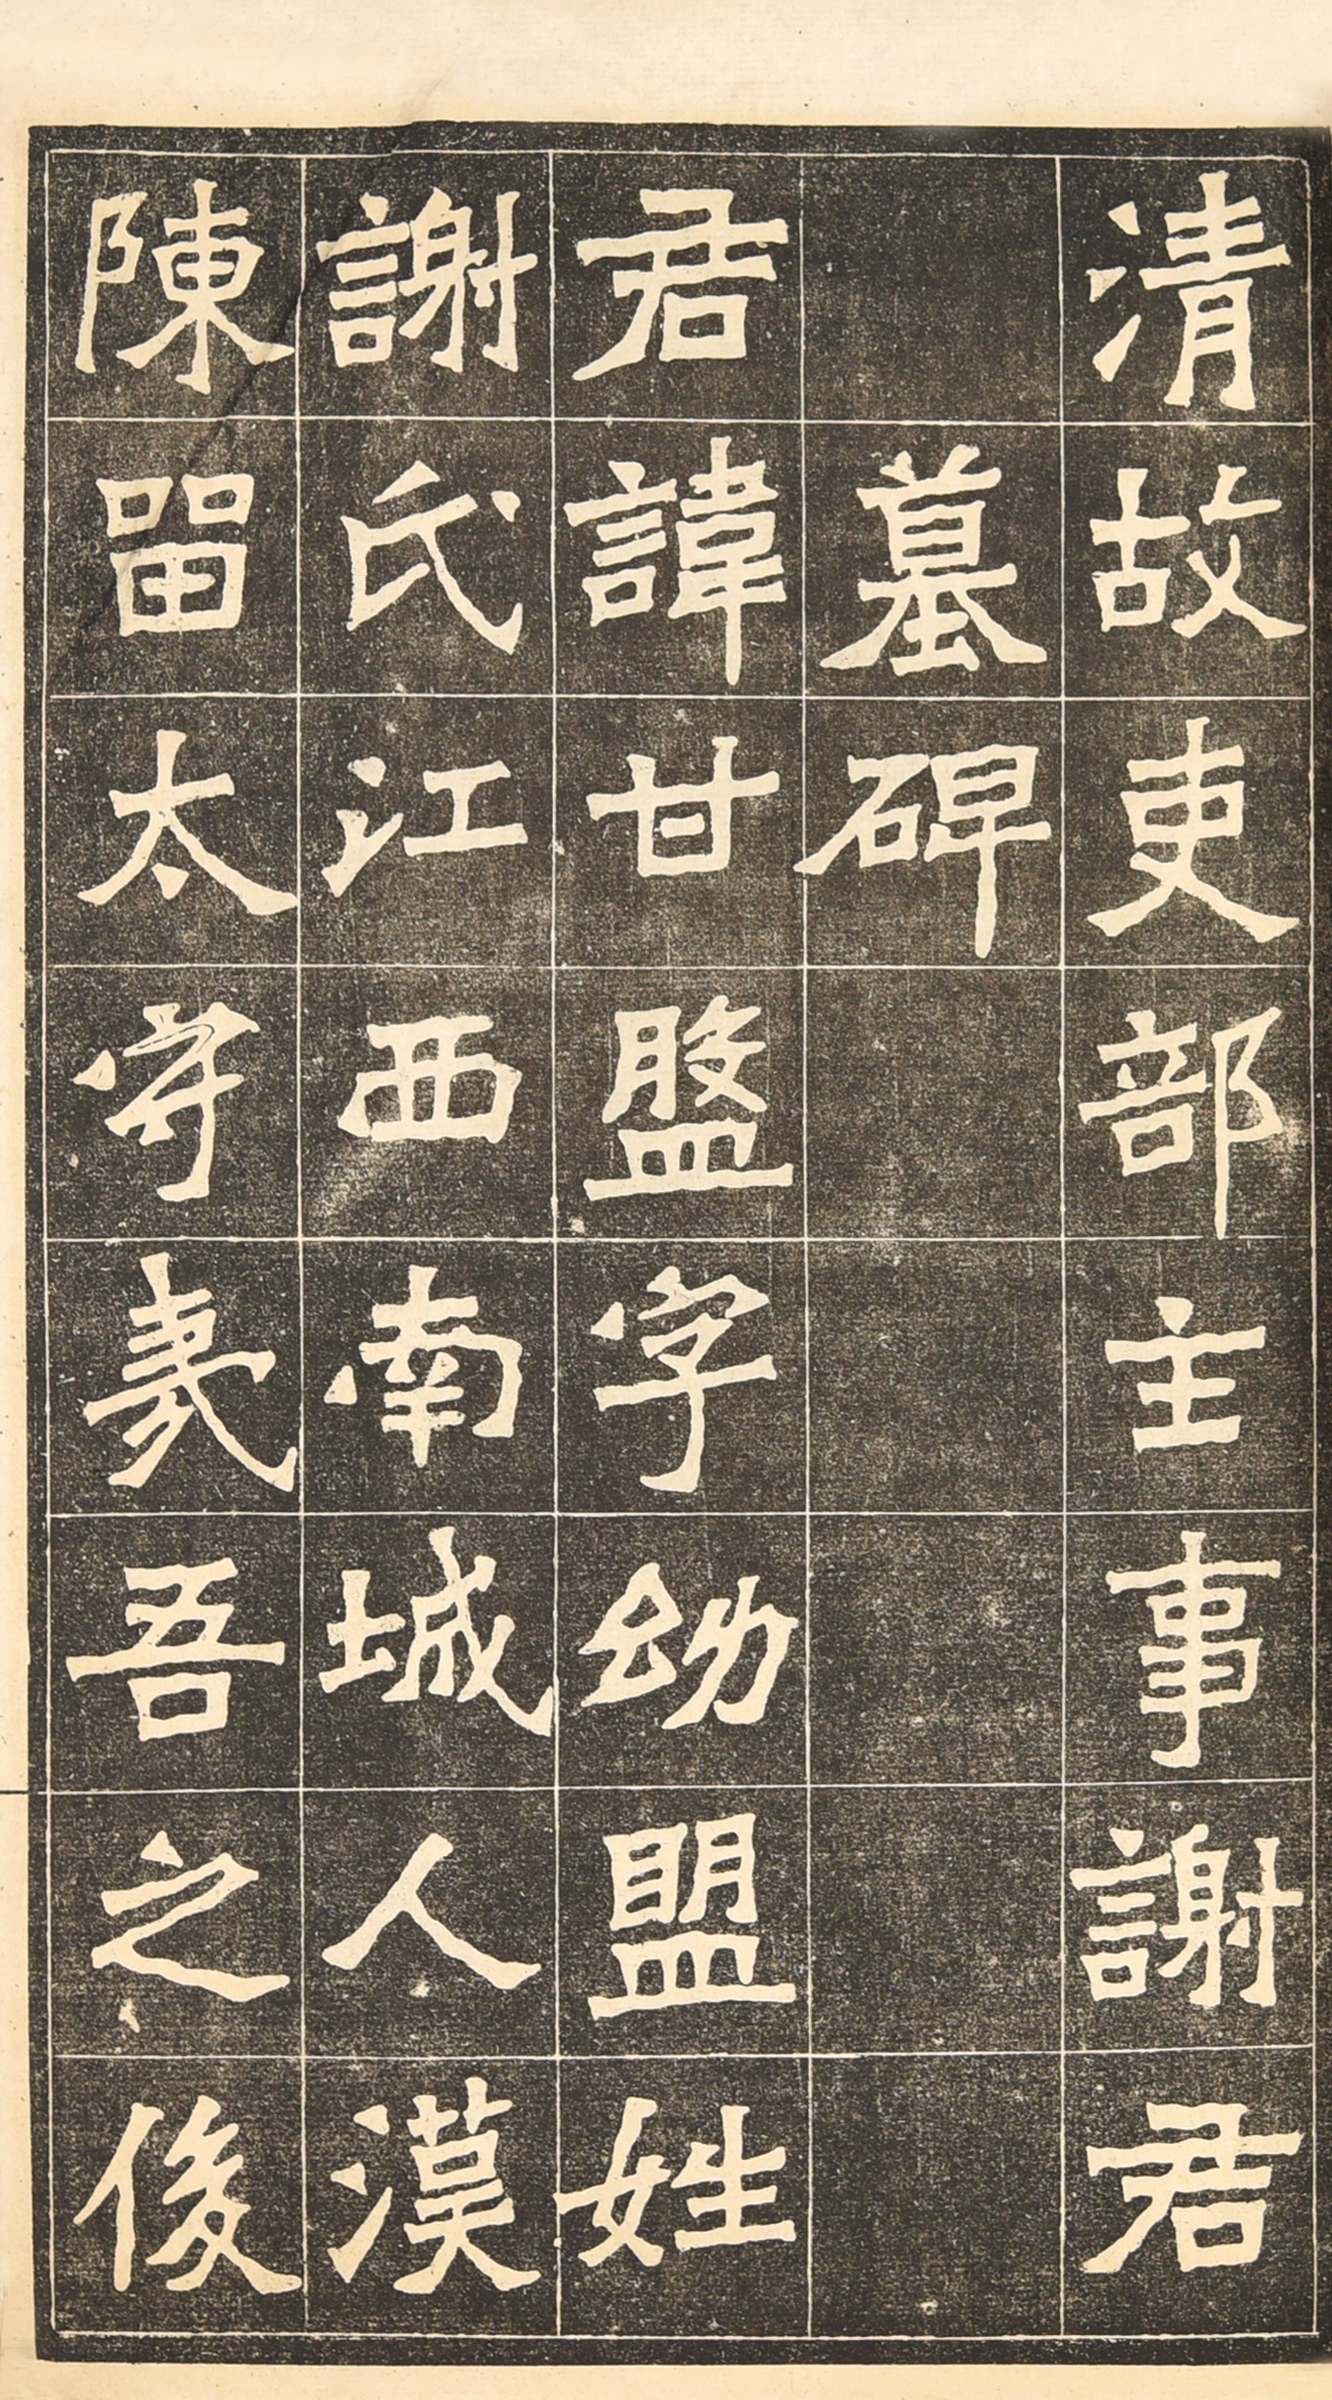 清故吏部主事謝君
墓碑
君諱甘盤字幼盟姓
謝氏江西南城人漢
陳留太守夷吾之後